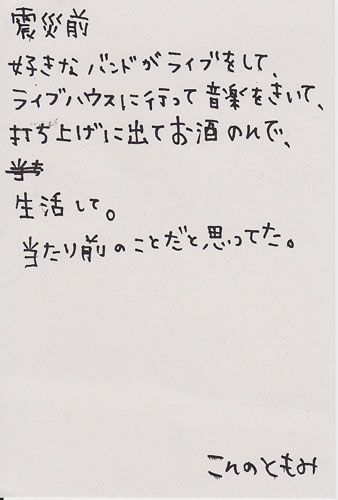 震災前
好きな バンドが ライブをして、
ライブハウスに行って 音楽をきいて、
打ち上げに出て お酒 のんで、
生活して。
当たり前のことだと思ってた。
こんのともみ